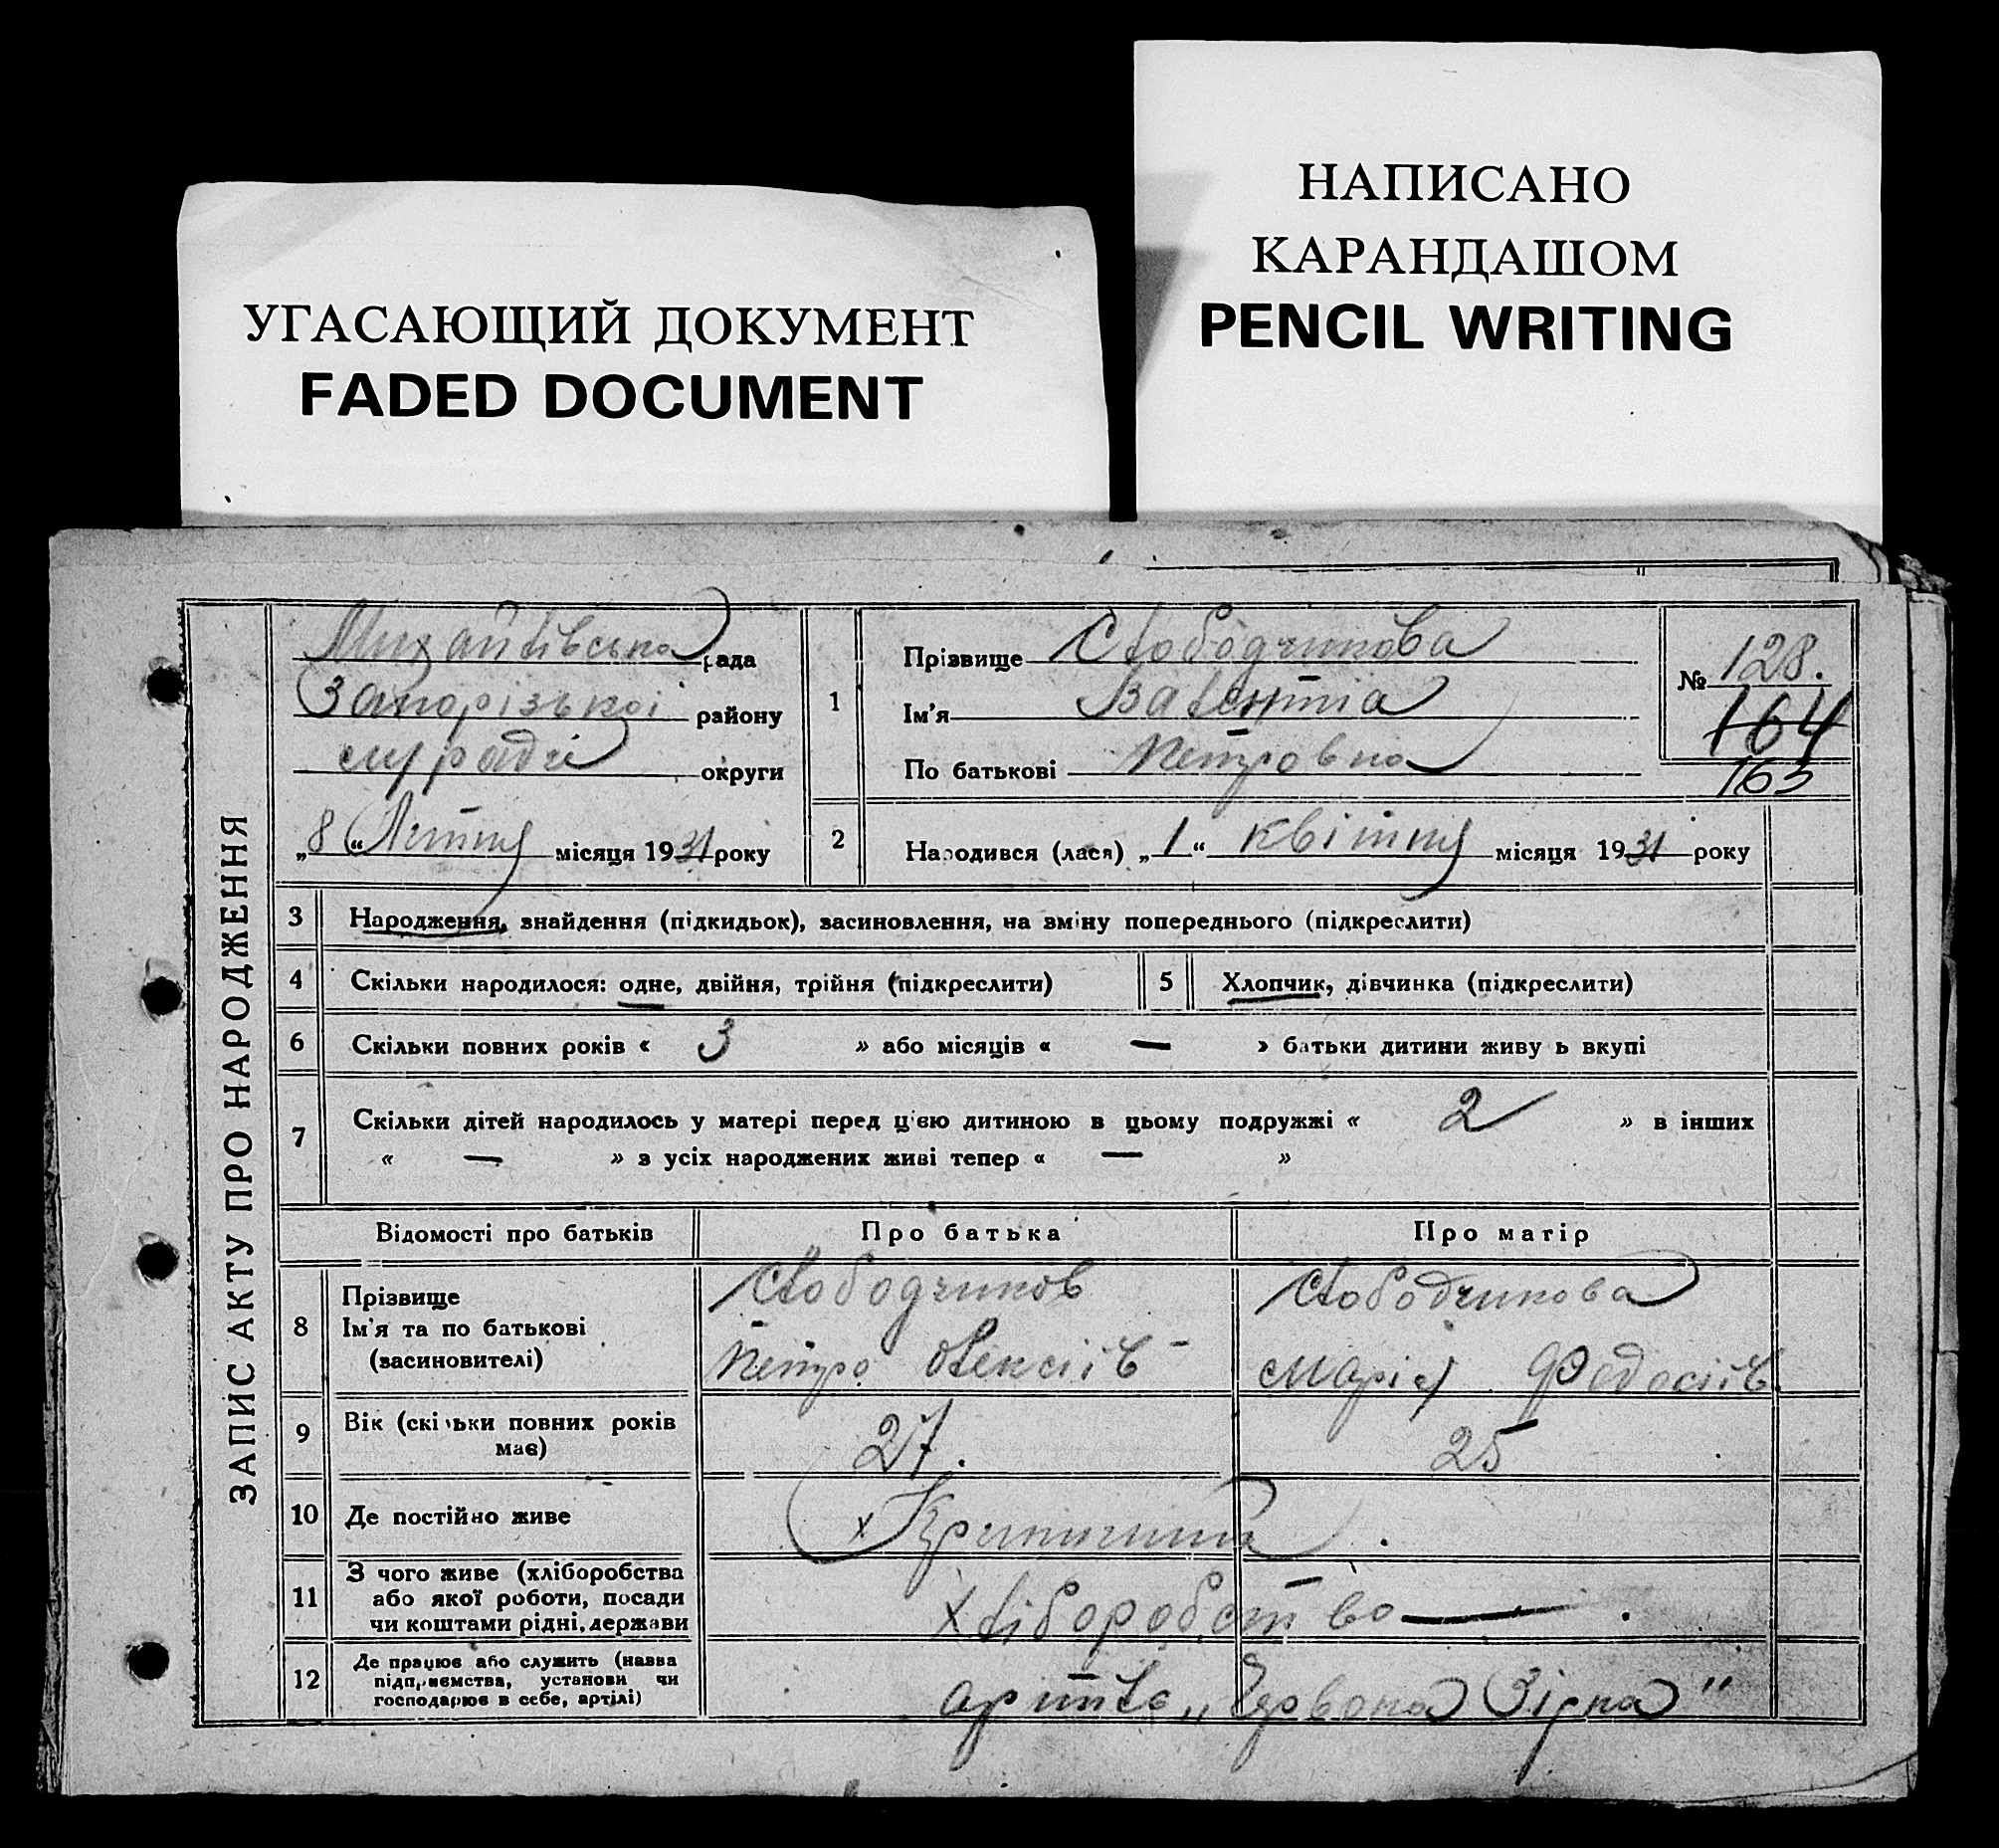 НАПИСАНО
КАРАНДАШОМ
PENCIL WRITING
УГАСАЮЩИЙ ДОКУМЕНТ
FADED DOCUMENT
ЗАПИС АКТУ ПРО НАРОДЖЕННЯ
Михайлівська рада
Запорізької району
міськради округи
„8“ Липня місяця 1931 року
1
Прізвище Слободчикова
Ім'я Валентіна
По батькові Петровна
№ 128.
164
163
2 Народився (лася) „1“ квітня місяця 1931 року
3 Народження, знайдення (підкидьок), засиновлення, на зміну попереднього (підкреслити)
4 Скільки народилося: одне, двійня, трійня (підкреслити) 5 Хлопчик, дівчинка (підкреслити)
6 Скільки повних років « 3 » або місяців « — » батьки дитини живуть вкупі
7 Скільки дітей народилось у матері перед цією дитиною в цьому подружжі « 2 » в інших
« — » з усіх народжених живі тепер « — »
Відомості про батьків Про батька Про матір
8 Прізвище Слободчиков Слободчикова
Ім'я та по батькові
(засиновителі) Петро Олексіїв Марія Федосіїв
9 Вік (скільки повних років має) 27. 25
10 Де постійно живе х Кринишний
11 З чого живе (хліборобства
або якої роботи, посади
чи коштами рідні, держави Хліборобство —
12 Де працює або служить (назва
підприємства, установи чи
господарює в себе, артілі) артіль „Червона Зірка"